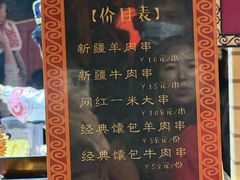 【价目表】
新疆羊肉串
￥10元/串
新疆牛肉串
￥15元/串
网红一米大串
￥108元/串
经典馕包羊肉串
￥38元/份
经典馕包牛肉串
￥52元/份